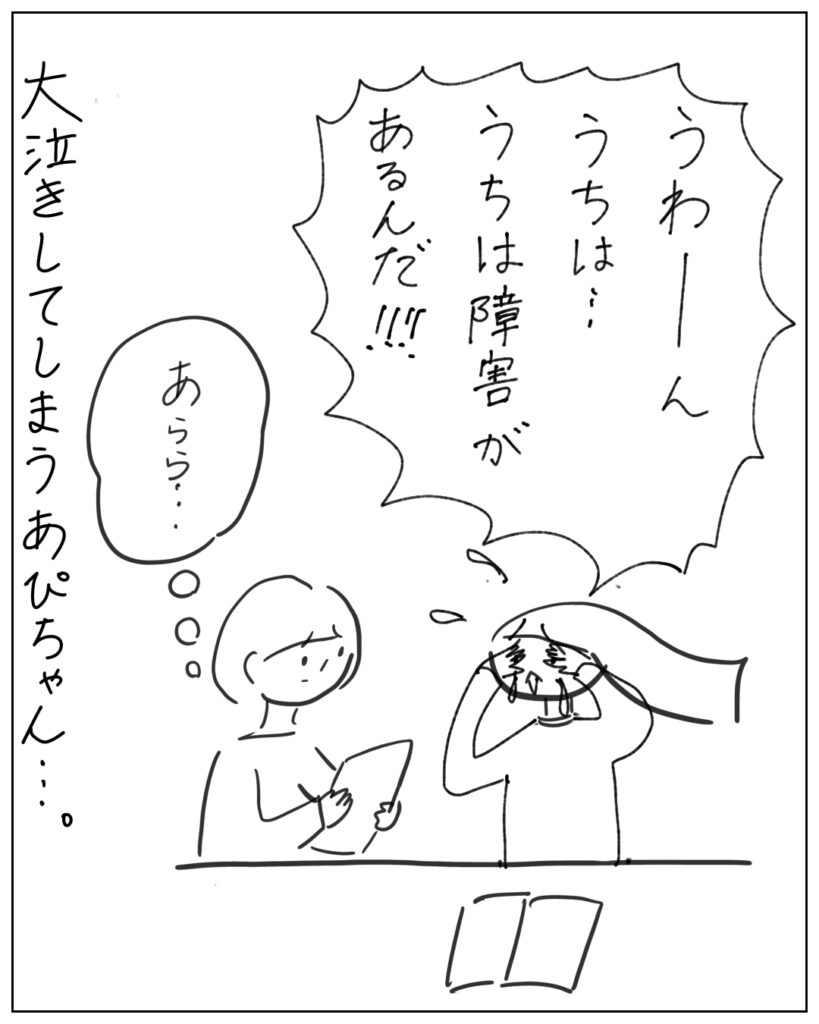 うわーん
うちは…
うちは障害が
あるんだ!!!
あらら…
大泣きしてしまうあぴちゃん…。